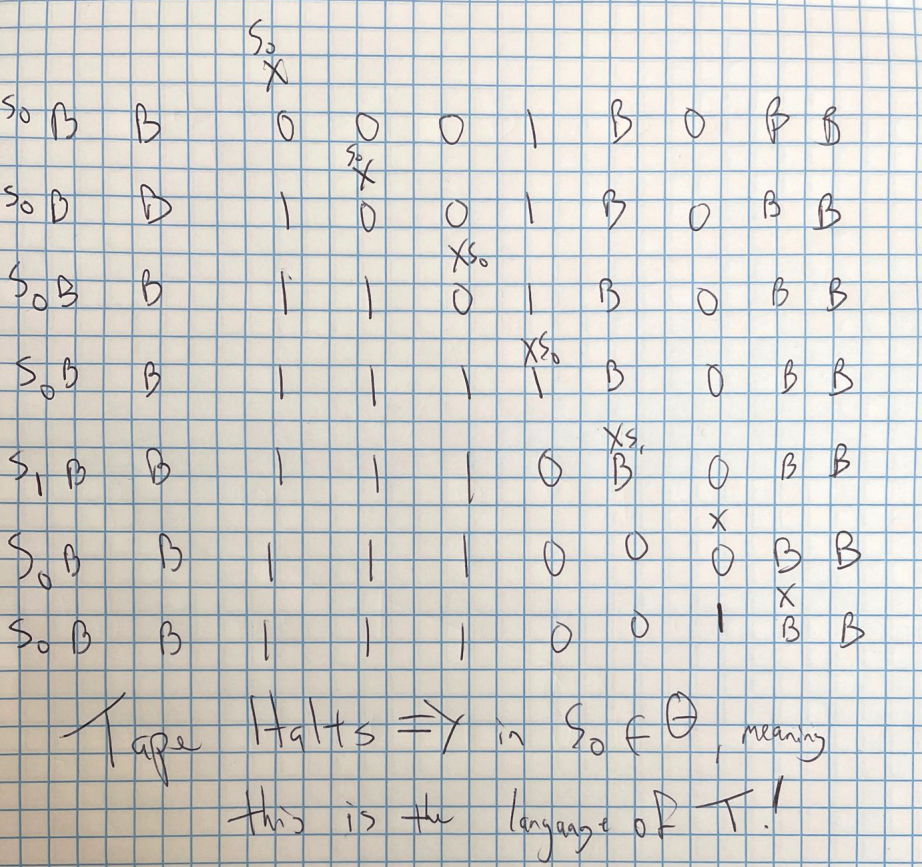 S₀
X
S₀ B B 0 0 0 1 B 0 B B
S₀
X
S₀ B B 1 0 0 1 B 0 B B
X S₀
S₀ B B 1 1 0 1 B 0 B B
X S₀
S₀ B B 1 1 1 1 B 0 B B
X S₁
S₁ B B 1 1 1 0 B 0 B B
X
S₀ B B 1 1 1 0 0 0 B B
X
S₀ B B 1 1 1 0 0 1 B B
Tape Halts => in S₀ ∈ Θ, meaning
this is the langaage of T!